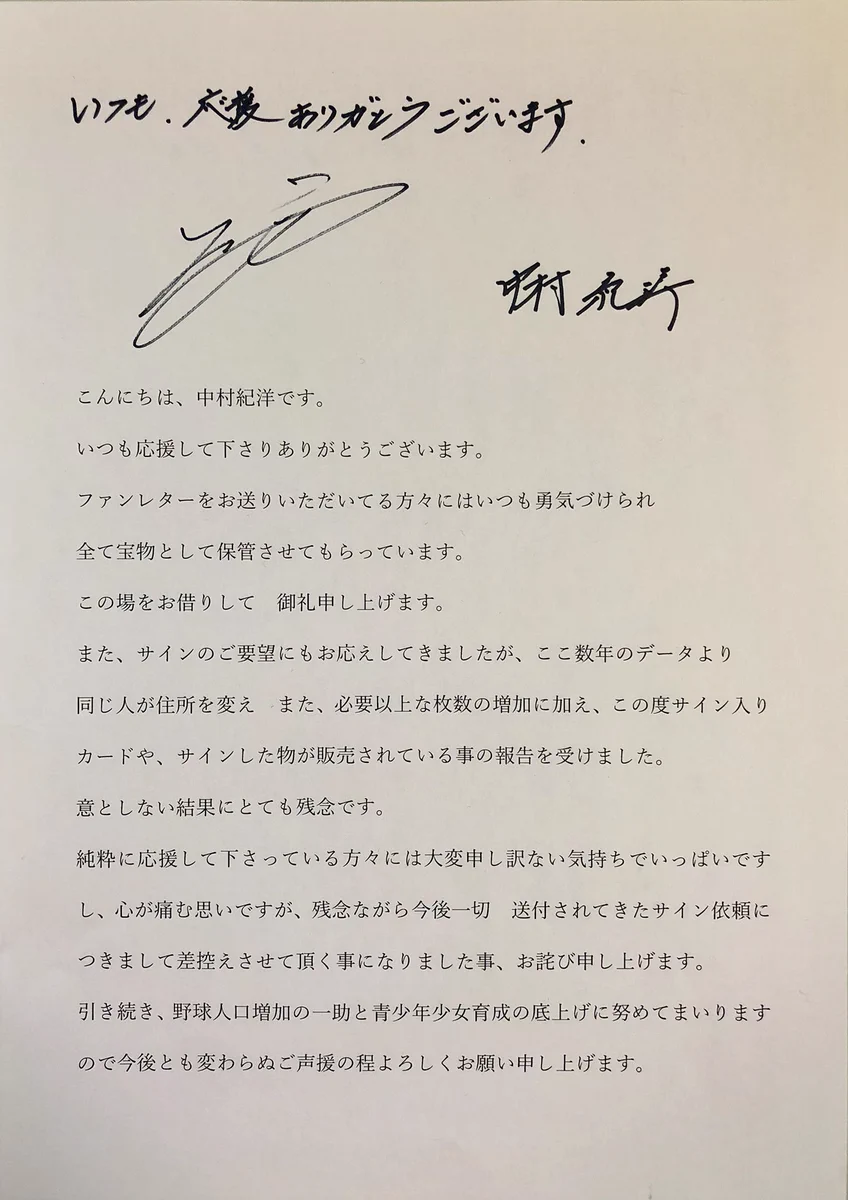 いつも. 応援ありがとうございます.
中村紀洋
こんにちは、中村紀洋です。
いつも応援して下さりありがとうございます。
ファンレターをお送りいただいてる方々にはいつも勇気づけられ
全て宝物として保管させてもらっています。
この場をお借りして　御礼申し上げます。
また、サインのご要望にもお応えしてきましたが、ここ数年のデータより
同じ人が住所を変え　また、必要以上な枚数の増加に加え、この度サイン入り
カードや、サインした物が販売されている事の報告を受けました。
意としない結果にとても残念です。
純粋に応援して下さっている方々には大変申し訳ない気持ちでいっぱいです
し、心が痛む思いですが、残念ながら今後一切　送付されてきたサイン依頼に
つきまして差控えさせて頂く事になりました事、お詫び申し上げます。
引き続き、野球人口増加の一助と青少年少女育成の底上げに努めてまいります
ので今後とも変わらぬご声援の程よろしくお願い申し上げます。